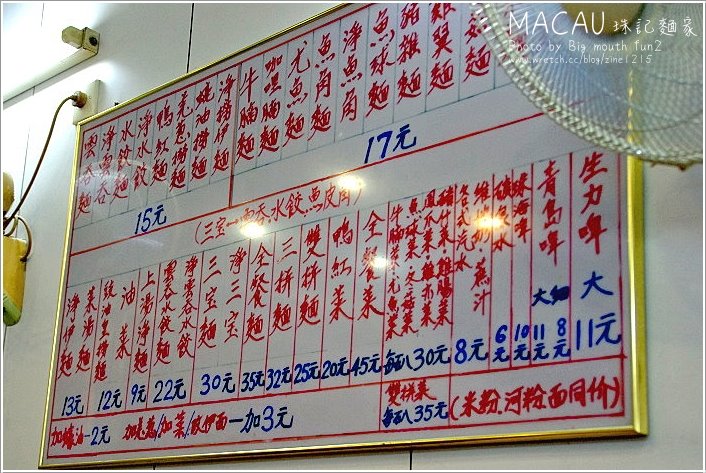 MACAU 珠記麵家
Photo by Big mouth fun2
www.wretch.cc/blog/zine1215
雲吞麵
淨雲吞
水餃麵
淨水餃
鴨紅麵
蠔油撈麵
淨撈伊麵
15元
牛腩麵
咖喱腩麵
尤魚麵
魚角麵
淨魚角
魚球麵
豬雜麵
雞翼麵
17元
(三宝—雲吞水餃,魚皮角)
淨伊麵
13元
菜湯麵
豉油皇撈麵
12元
油菜
9元
上湯淨麵
雲吞水餃麵
淨雲吞水餃
22元
三宝麵
淨三宝
30元
全餐麵
35元
三拼麵
32元
雙拼麵
25元
鴨紅菜
20元
全餐菜
45元
每八30元
各式汽水
維他奶 蔗汁
8元
礦泉水
6元
珠海啤
10元
青島啤
大 11元
細 8元
生力啤
大
11元
加蠔油—2元
加葱/加菜/改伊面—加3元
雙拼菜
每八35元
(米粉,河粉,面同价)